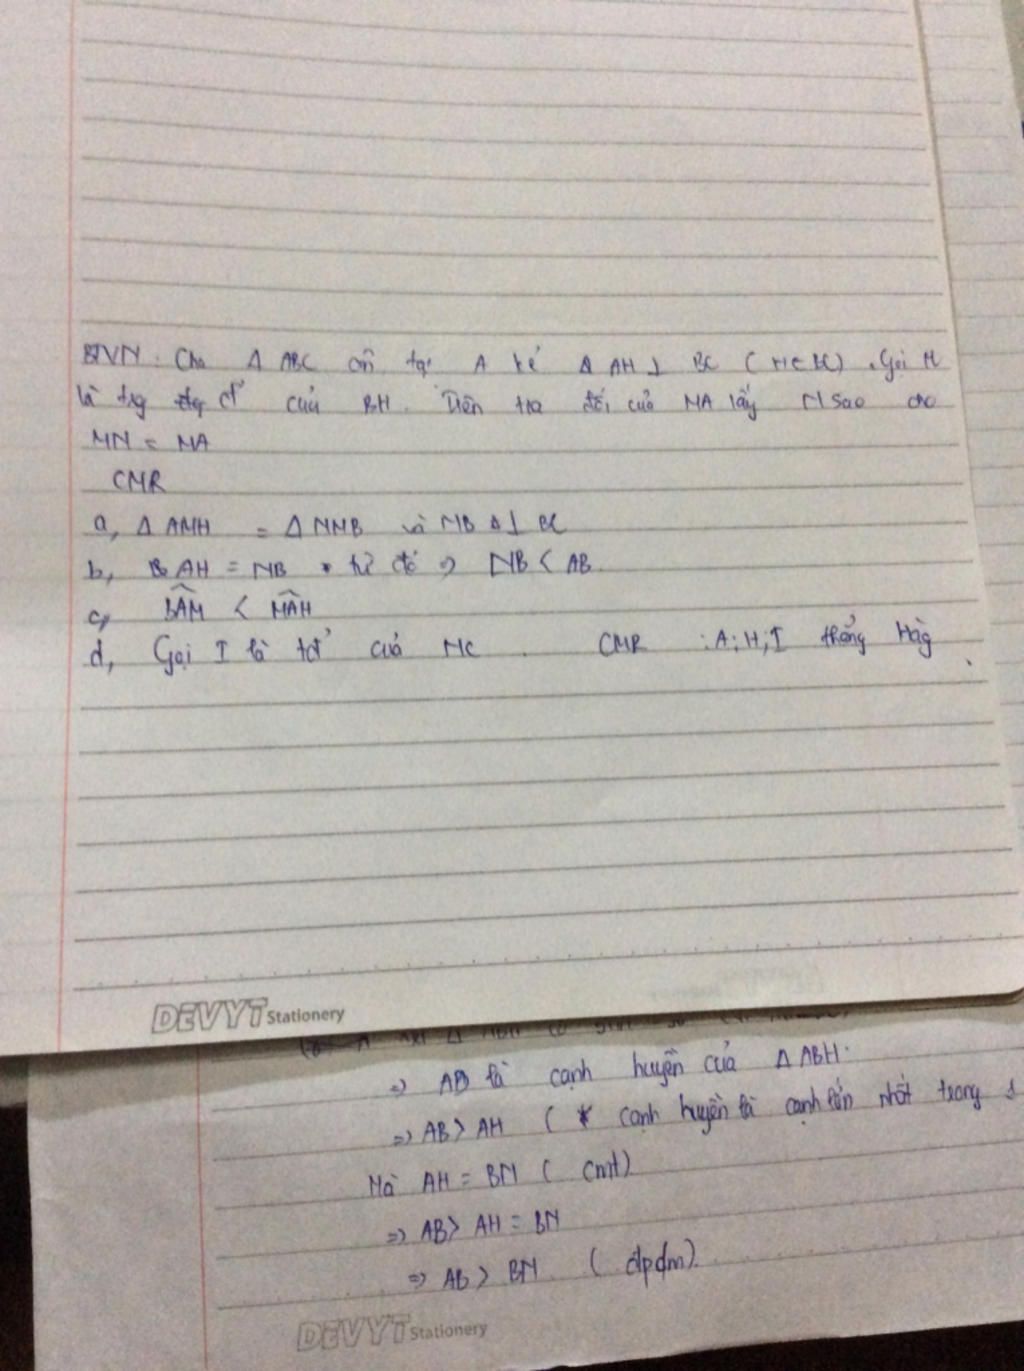 BTVN: Cho Δ ABC cân tại A kẻ Δ AH ⊥ BC (H∈BC). Gọi M
là trg đ' của BH. Trên tia đối của MA lấy N sao cho
MN = MA
CMR
a, Δ AMH = Δ NMB và NB ⊥ BC
b, AH = NB từ đó => NB < AB
c, BÂM < MÂH
d, Gọi I là tđ' của NC. CMR: A; H; I thẳng Hàg
DEVYT Stationery
=> AB là cạnh huyền của Δ ABH.
=> AB > AH ( cạnh huyền là cạnh lớn nhất trong
Mà AH = BN ( cmt)
=> AB > AH = BN
=> AB > BN ( đpcm).
DEVYT Stationery